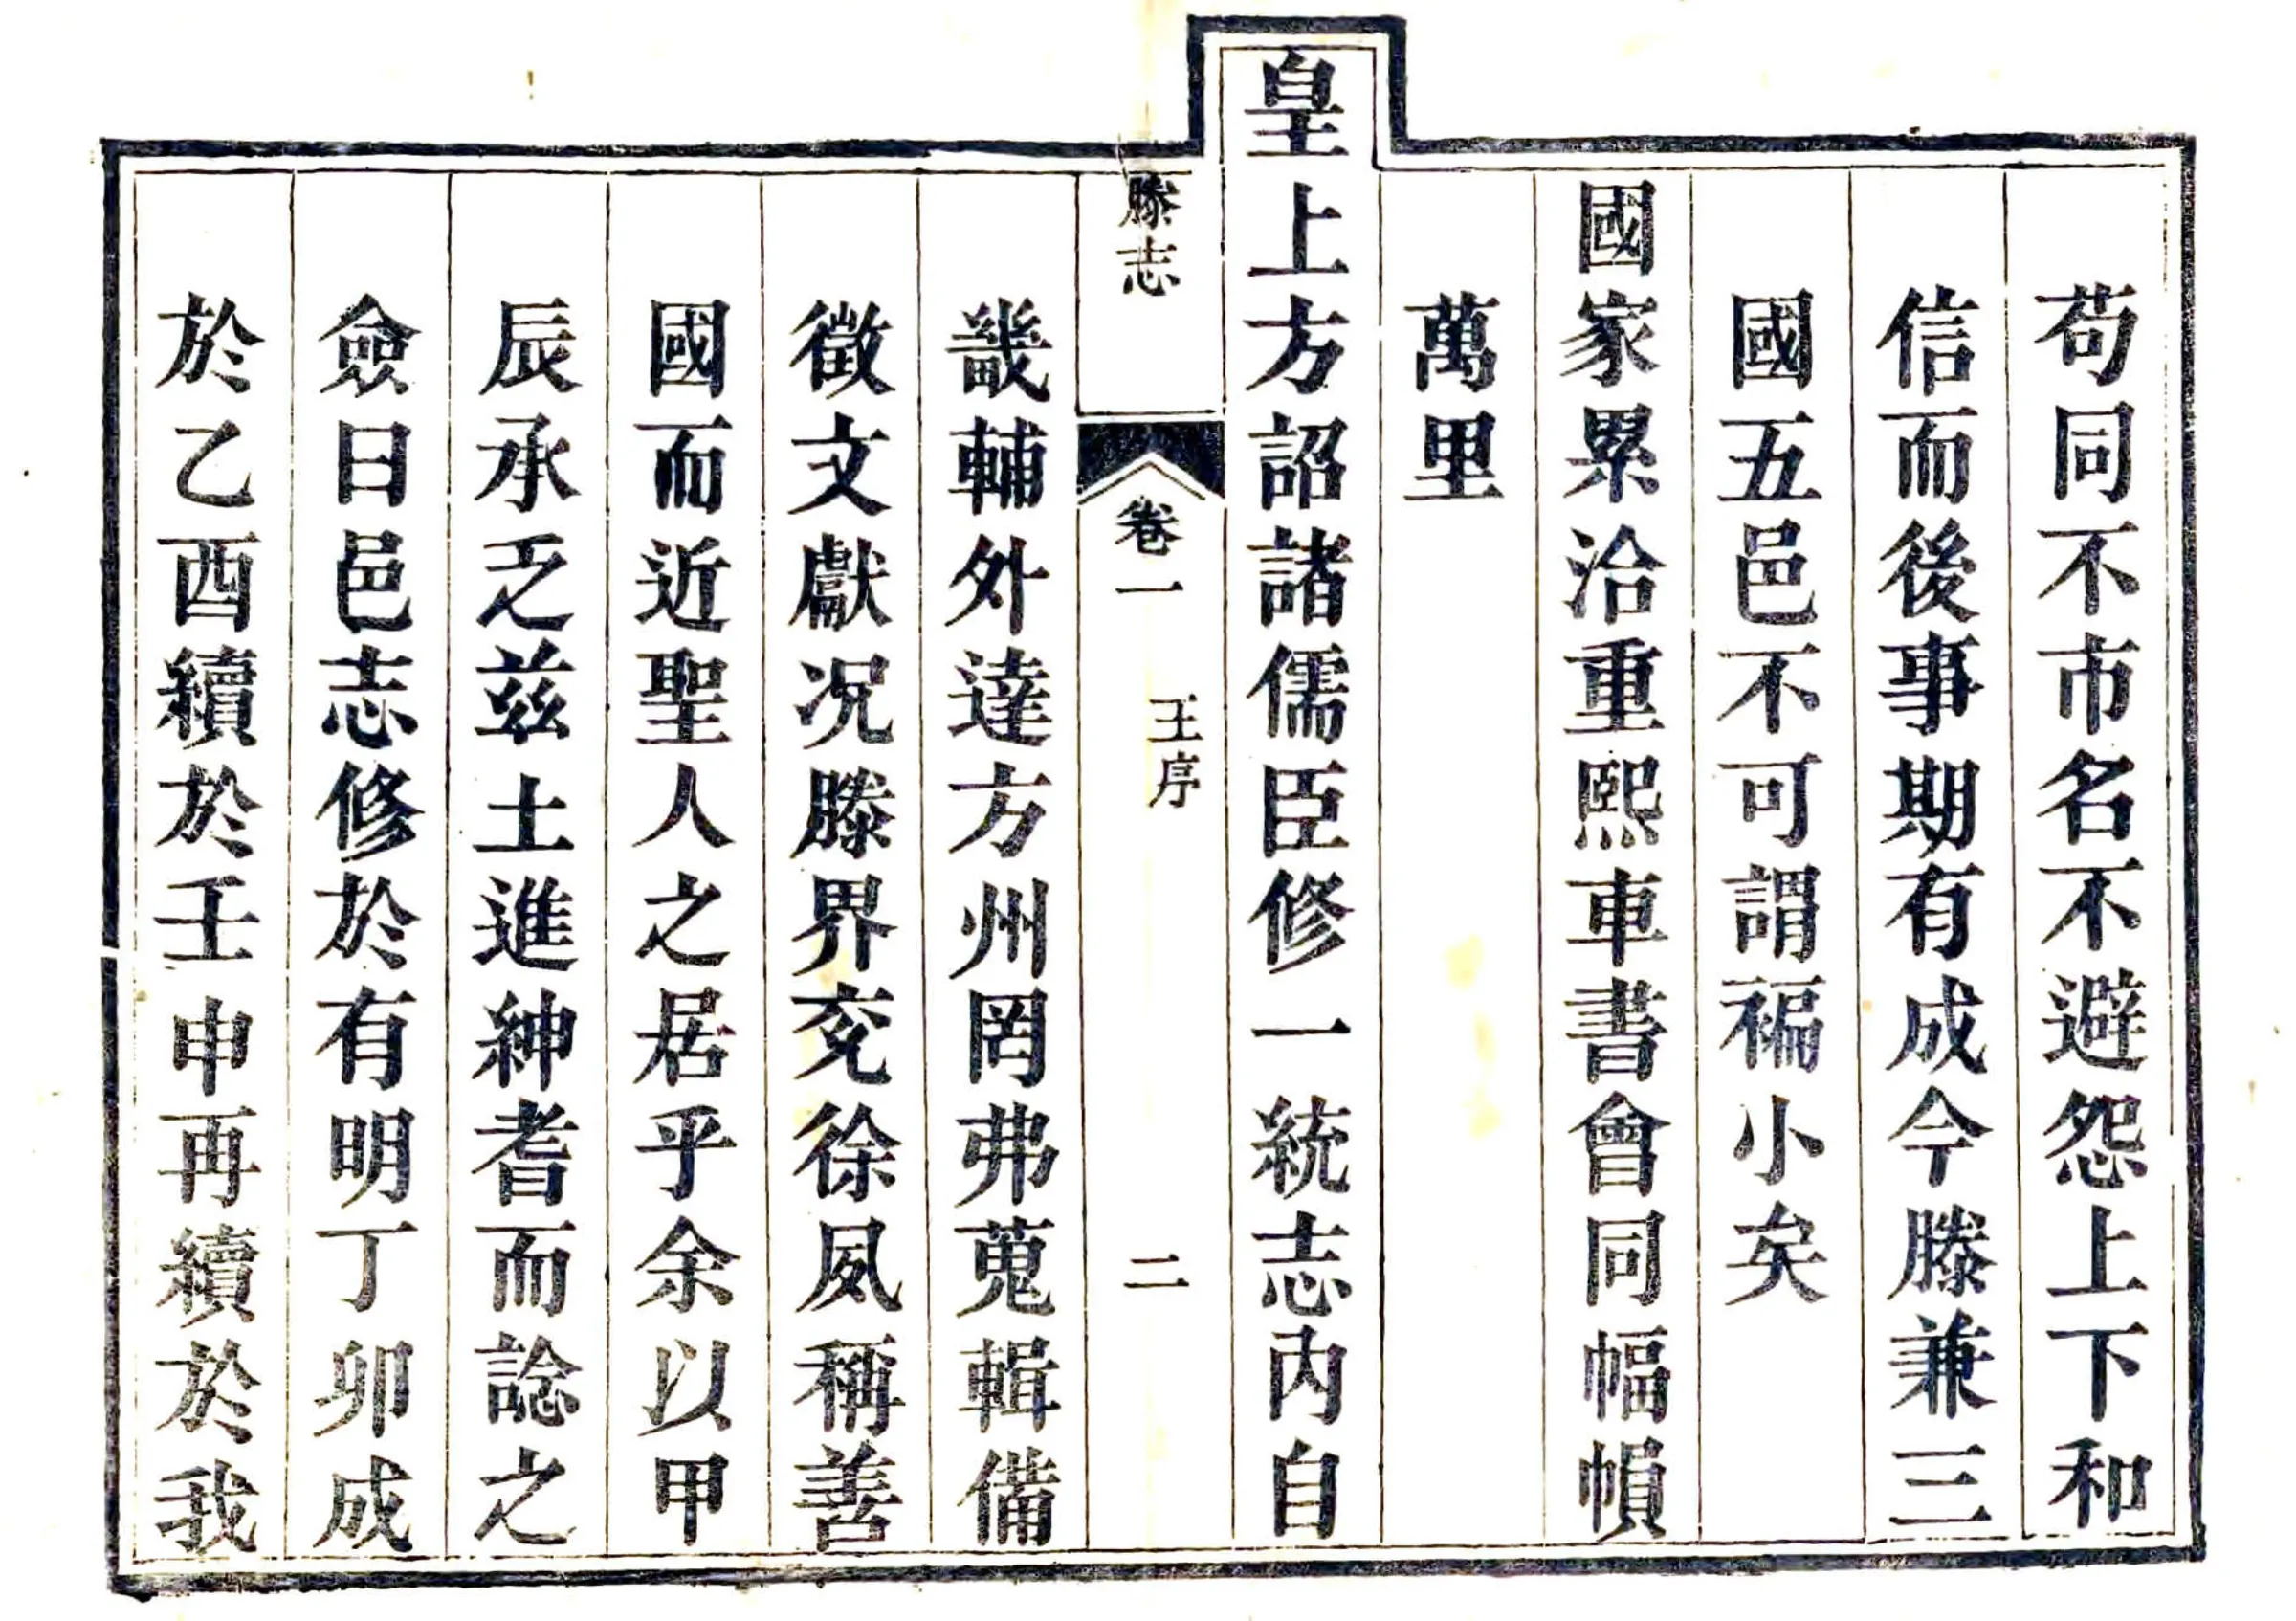 苟同不市名不避怨上下和
信而後事期有成今滕兼三
國五邑不可謂褊小矣
國家累洽重熙車書會同幅幀
萬里
皇上方詔諸儒臣修一統志內自
滕志
卷一
王序
二
畿輔外達方州罔弗蒐輯備
徵文獻况滕界兖徐夙稱善
國而近聖人之居乎余以甲
辰承乏兹土進紳耆而諗之
僉曰邑志修於有明丁卯成
於乙酉續於壬申再續於我